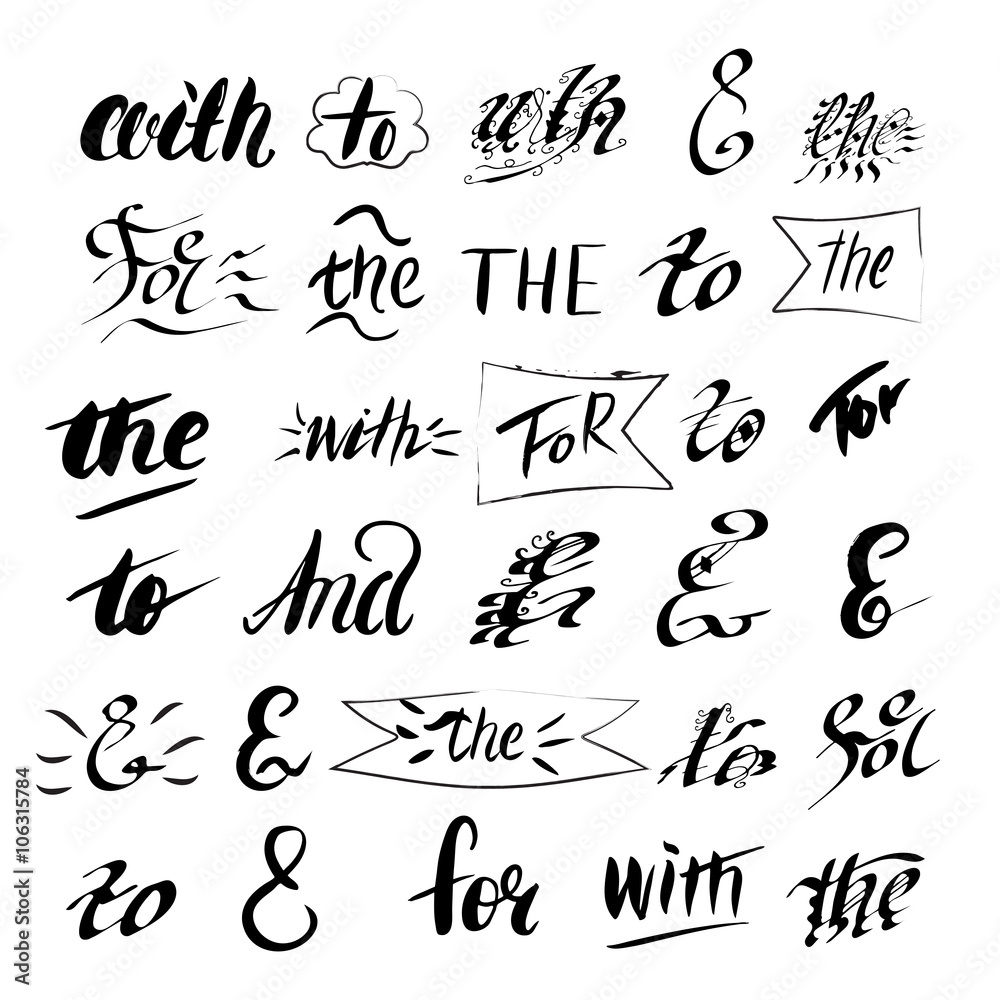 with to with & the
For the THE to the
the with FoR to For
to And & & &
& & the to for
to & for with the
Adobe Stock | #106315784